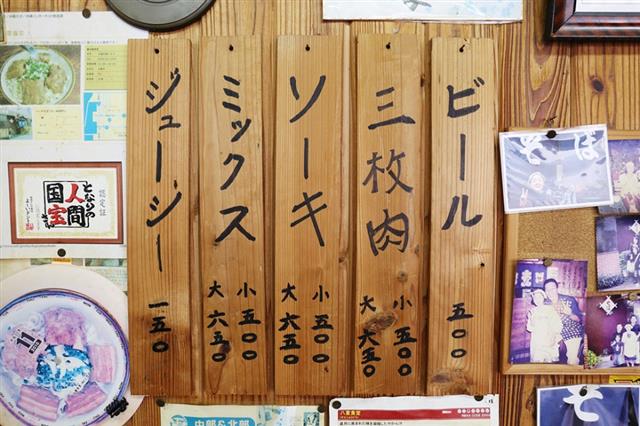 ビール
五〇〇
三枚肉
小 五〇〇
大 六五〇
ソーキ
小 五〇〇
大 六五〇
ミックス
小 五〇〇
大 六五〇
ジューシー
一五〇
そば
認定証
となりの
人間
国宝
さん
11
中部&北部
八重食堂